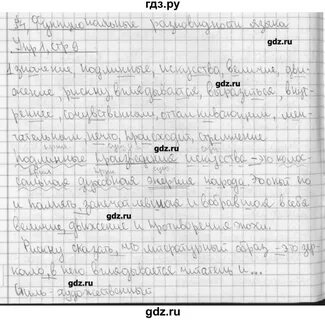 ГДЗ.РУ
§1, Функциональные разновидности языка
Упр.1, стр 9
1. значение, подлинное, искусства, величие, дви-
жение, рискну, вглядывается, выразиться, внут-
реннее, сочувственным, отталкивающим, меч-
тательным, нечто, происходит, стремление
подлинное произведение искусства – это колос-
сальная духовная энергия народа. Это опыт по
и память, запечатлевшая и вобравшая в себя
величие, движение и противоречия эпохи.
Рискну сказать, что литературный образ – это зер-
кало, в него вглядывается читатель и ...
Стиль – художественный
gdz.ru